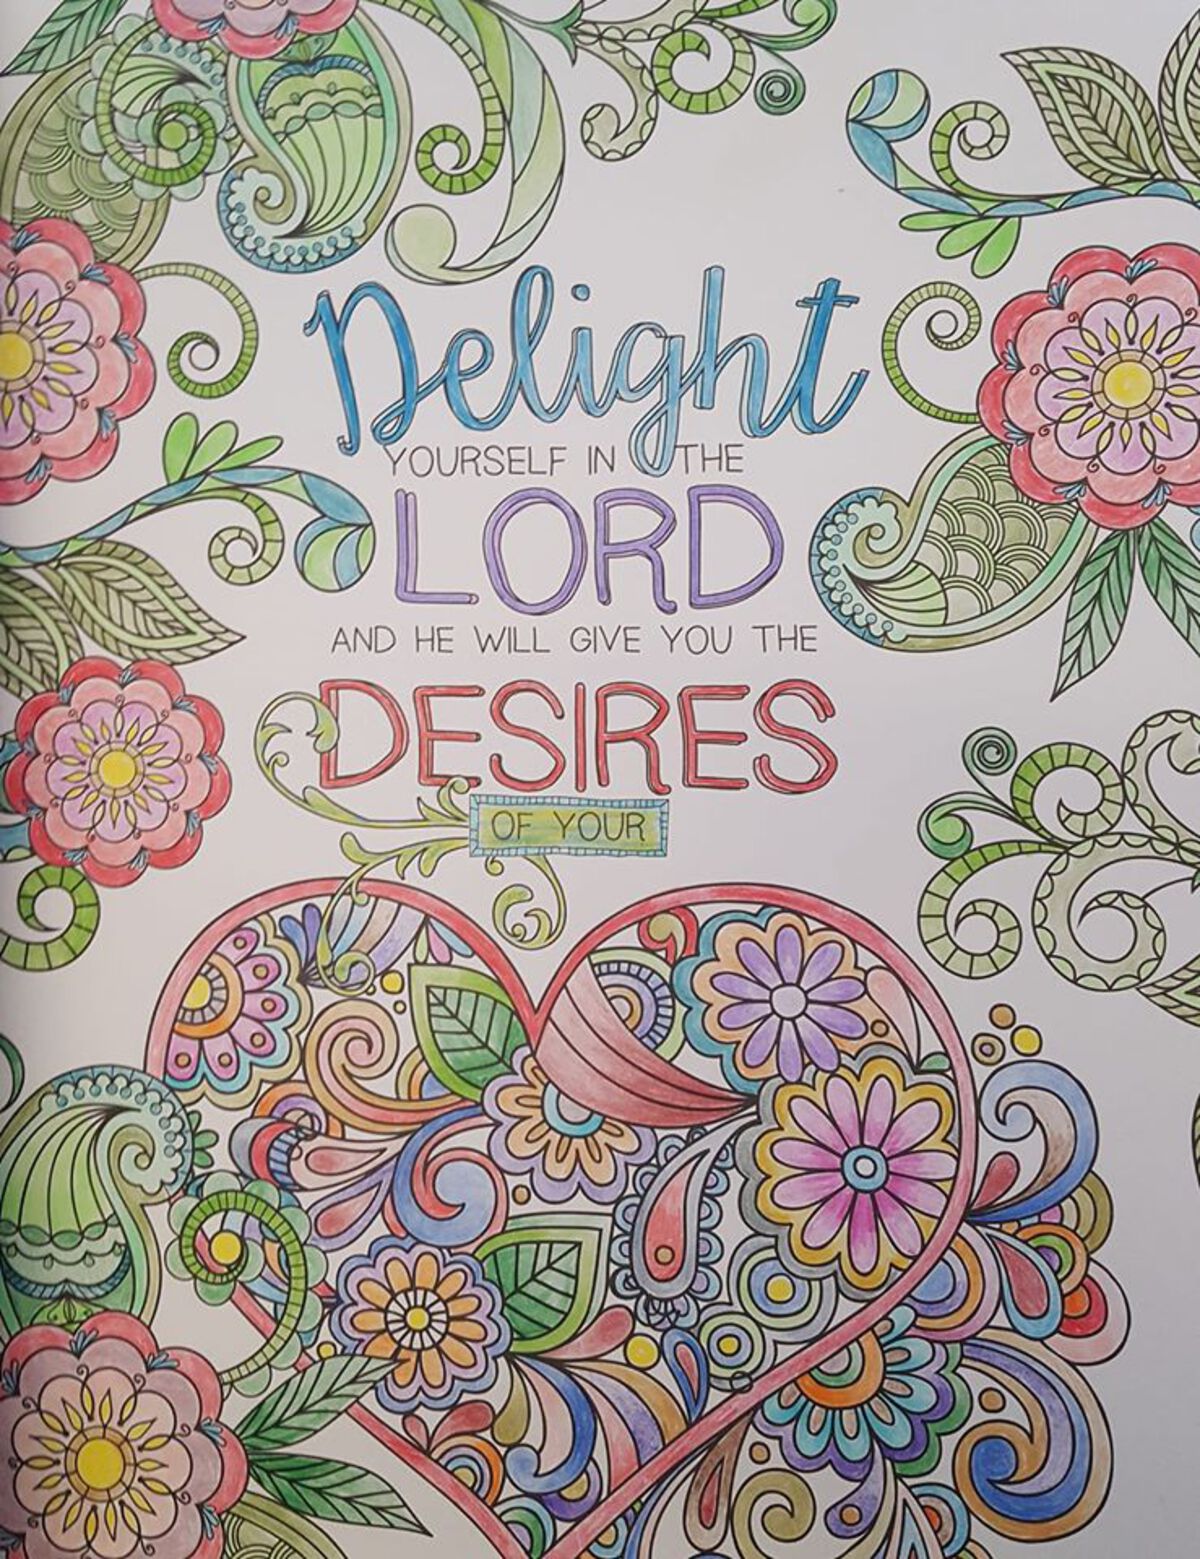 Delight
YOURSELF IN THE
LORD
AND HE WILL GIVE YOU THE
DESIRES
OF YOUR